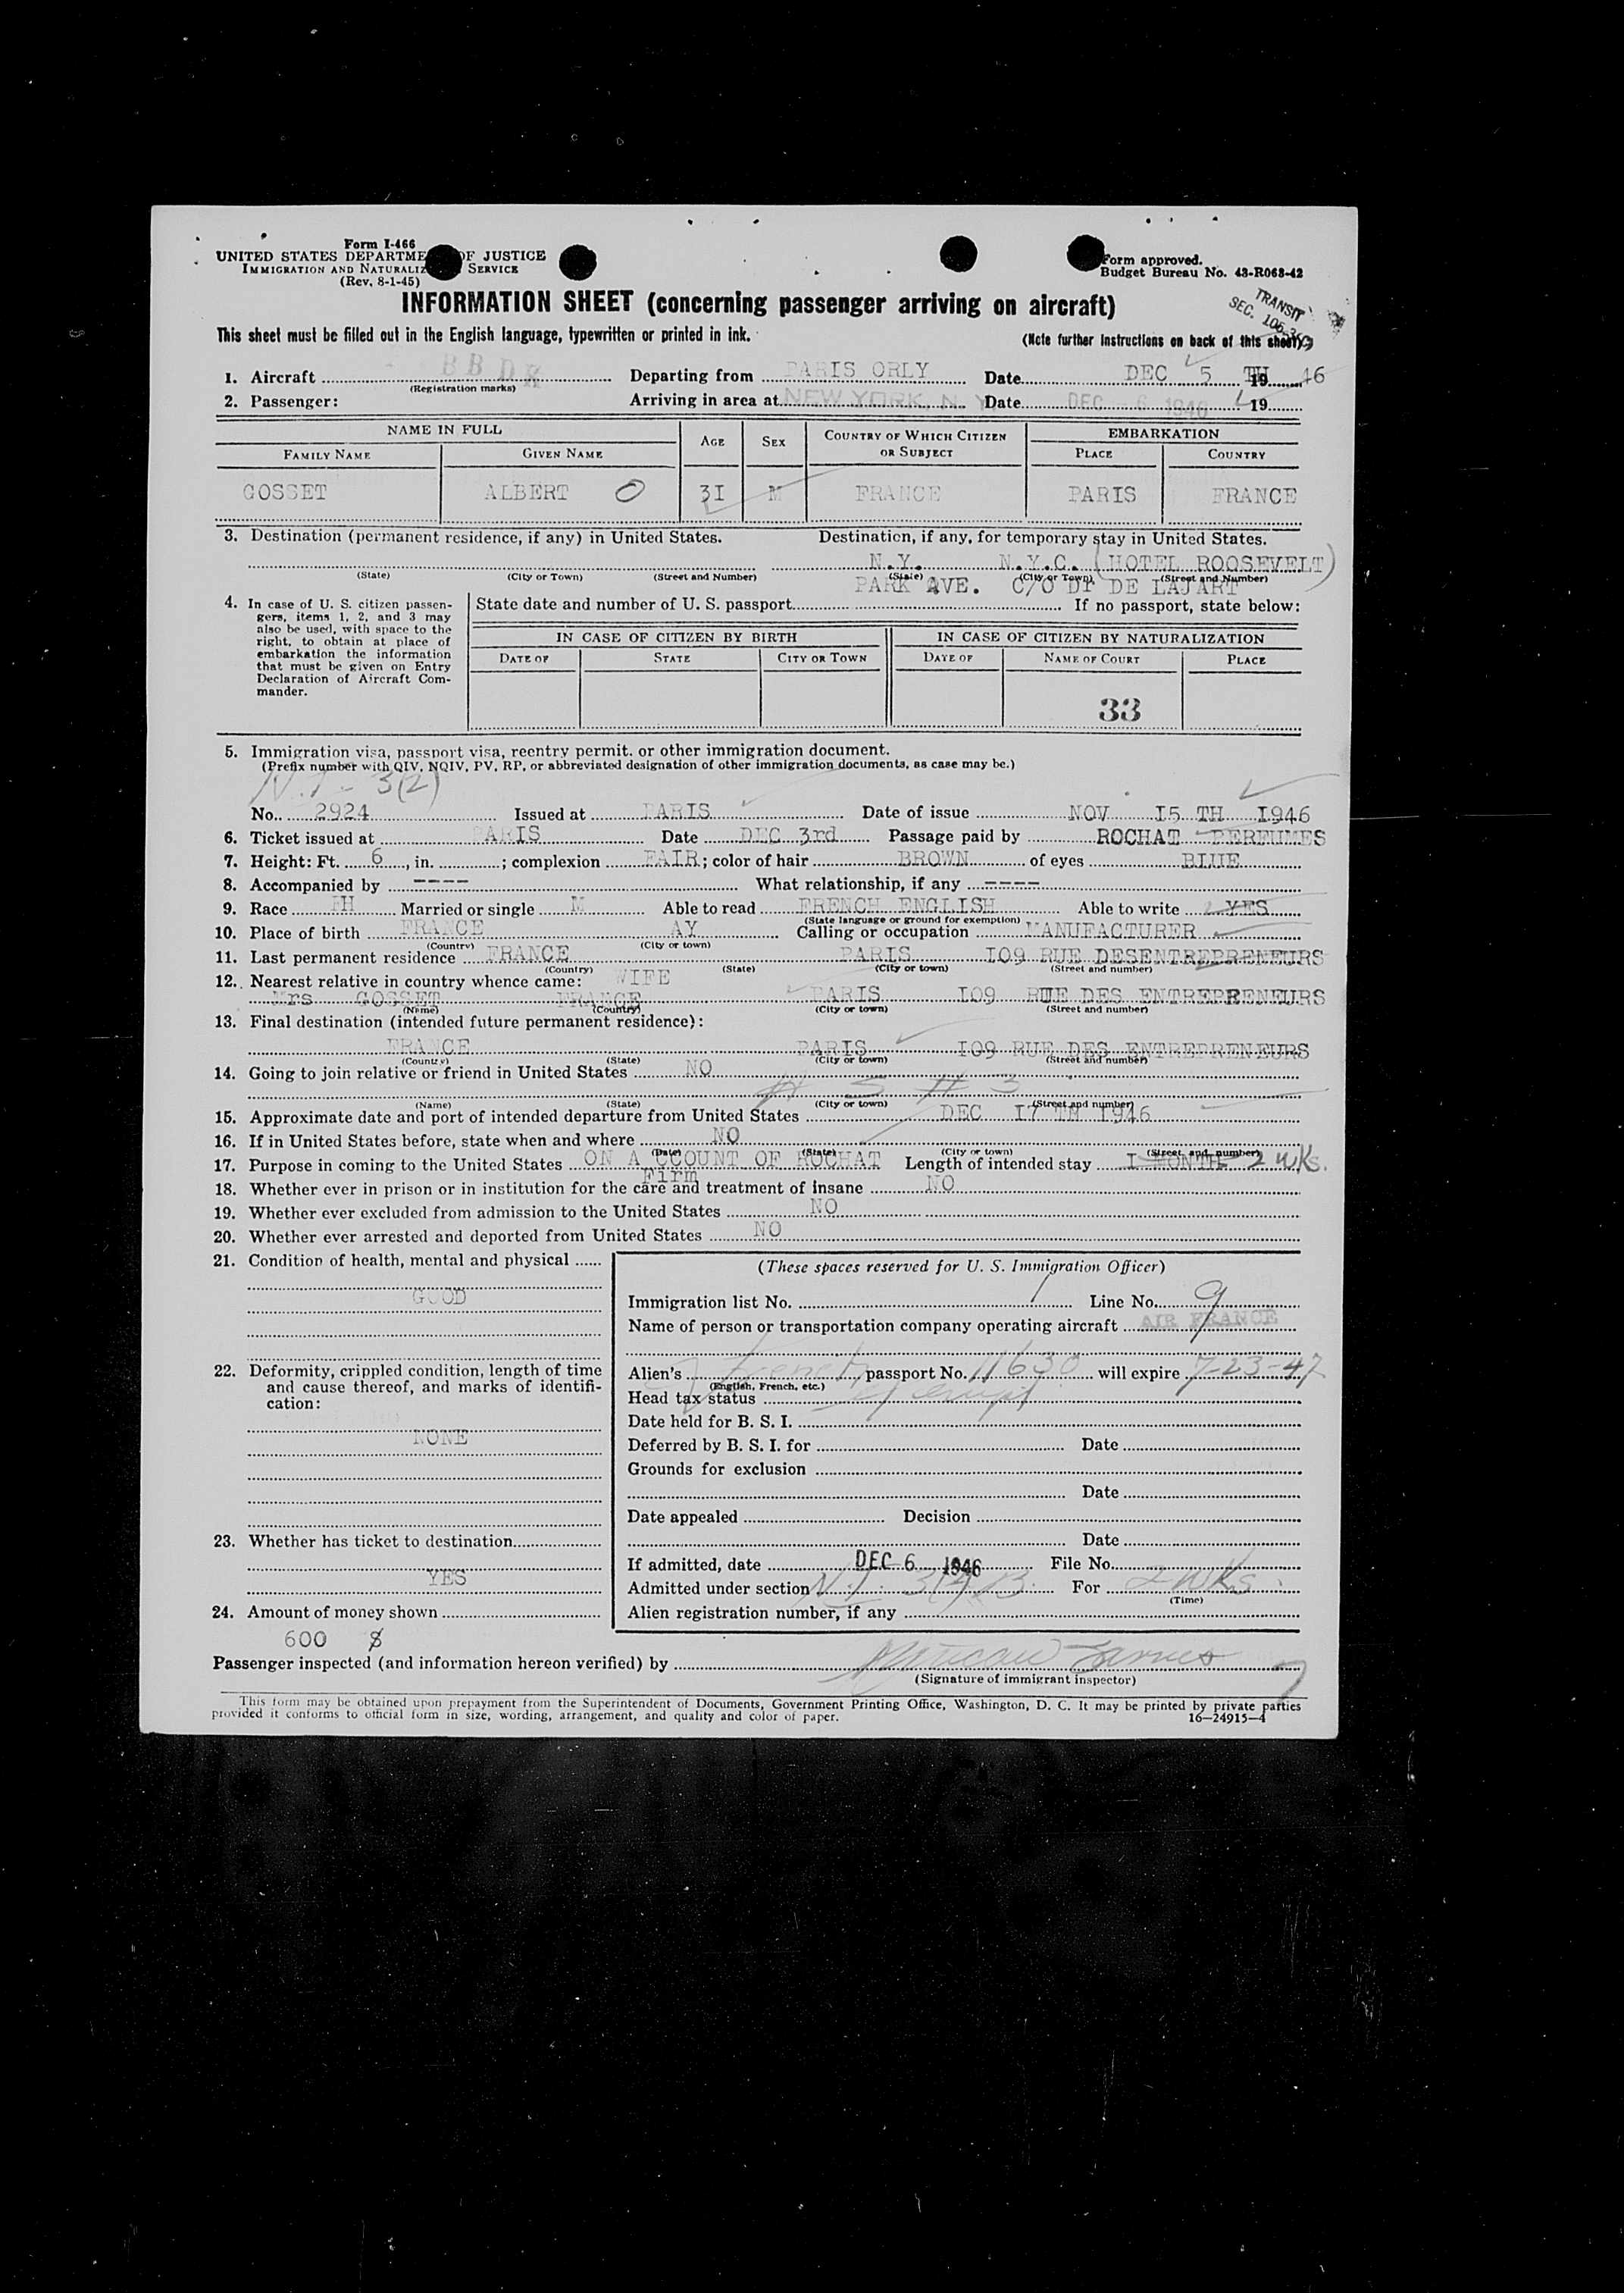 Form I-466
UNITED STATES DEPARTME OF JUSTICE
IMMIGRATION AND NATURALIZ SERVICE
(Rev. 8-1-45)
Form approved.
Budget Bureau No. 43-R068-42
INFORMATION SHEET (concerning passenger arriving on aircraft)
TRANSIT
SEC. 106.3
This sheet must be filled out in the English language, typewritten or printed in ink.
(Note further instructions on back of this sheet)
1. Aircraft BBDR Departing from PARIS ORLY Date DEC 5 TH 19 46
(Registration marks)
2. Passenger: Arriving in area at NEW YORK, N. Y. Date DEC - 6 1946 19
NAME IN FULL AGE SEX COUNTRY OF WHICH CITIZEN OR SUBJECT EMBARKATION
FAMILY NAME GIVEN NAME PLACE COUNTRY
GOSSET ALBERT O 3I M FRANCE PARIS FRANCE
3. Destination (permanent residence, if any) in United States. Destination, if any, for temporary stay in United States.
N.Y. N.Y.C. (HOTEL ROOSEVELT)
(State) (City or Town) (Street and Number) (State) (City or Town) (Street and Number)
PARK AVE. C/O DT DE LAJART
4. In case of U. S. citizen passengers, items 1, 2, and 3 may also be used, with space to the right, to obtain at place of embarkation the information that must be given on Entry Declaration of Aircraft Commander.
State date and number of U. S. passport If no passport, state below:
IN CASE OF CITIZEN BY BIRTH IN CASE OF CITIZEN BY NATURALIZATION
DATE OF STATE CITY OR TOWN DATE OF NAME OF COURT PLACE
33
5. Immigration visa, passport visa, reentry permit, or other immigration document.
(Prefix number with QIV, NQIV, PV, RP, or abbreviated designation of other immigration documents, as case may be.)
N.I - 3(2)
No. 2924 Issued at PARIS Date of issue NOV I5 TH I946
6. Ticket issued at PARIS Date DEC 3rd Passage paid by ROCHAT PERFUMES
7. Height: Ft. 6, in. ; complexion FAIR; color of hair BROWN of eyes BLUE
8. Accompanied by ---- What relationship, if any ----
9. Race FH Married or single M Able to read FRENCH ENGLISH Able to write YES
(State language or ground for exemption)
10. Place of birth FRANCE AY Calling or occupation MANUFACTURER
(Country) (City or town)
11. Last permanent residence FRANCE PARIS IO9 RUE DESENTREPRENEURS
(Country) (State) (City or town) (Street and number)
12. Nearest relative in country whence came: WIFE
Mrs GOSSET FRANCE PARIS IO9 RUE DES ENTREPRENEURS
(Name) (Country) (City or town) (Street and number)
13. Final destination (intended future permanent residence):
FRANCE PARIS IO9 RUE DES ENTREPRENEURS
(Country) (State) (City or town) (Street and number)
14. Going to join relative or friend in United States NO
(Name) (State) (City or town) (Street and number)
15. Approximate date and port of intended departure from United States DEC I7 TH I946
16. If in United States before, state when and where NO
(Date) (State) (City or town) (Street and number)
17. Purpose in coming to the United States ON A CCOUNT OF ROCHAT Length of intended stay I MONTH 2 WKS.
Firm
18. Whether ever in prison or in institution for the care and treatment of insane NO
19. Whether ever excluded from admission to the United States NO
20. Whether ever arrested and deported from United States NO
21. Condition of health, mental and physical
GOOD
22. Deformity, crippled condition, length of time and cause thereof, and marks of identification:
NONE
23. Whether has ticket to destination
YES
24. Amount of money shown
600 $
(These spaces reserved for U. S. Immigration Officer)
Immigration list No. 1 Line No. 9
Name of person or transportation company operating aircraft AIR FRANCE
Alien's French passport No. 11630 will expire 7-23-47
(English, French, etc.)
Head tax status exempt
Date held for B. S. I.
Deferred by B. S. I. for Date
Grounds for exclusion
Date
Date appealed Decision
Date
If admitted, date DEC 6 1946 File No.
Admitted under section N.I. 3(2) B. For 2 WKS.
(Time)
Alien registration number, if any
Passenger inspected (and information hereon verified) by
(Signature of immigrant inspector)
This form may be obtained upon prepayment from the Superintendent of Documents, Government Printing Office, Washington, D. C. It may be printed by private parties
provided it conforms to official form in size, wording, arrangement, and quality and color of paper.
16—24915-4